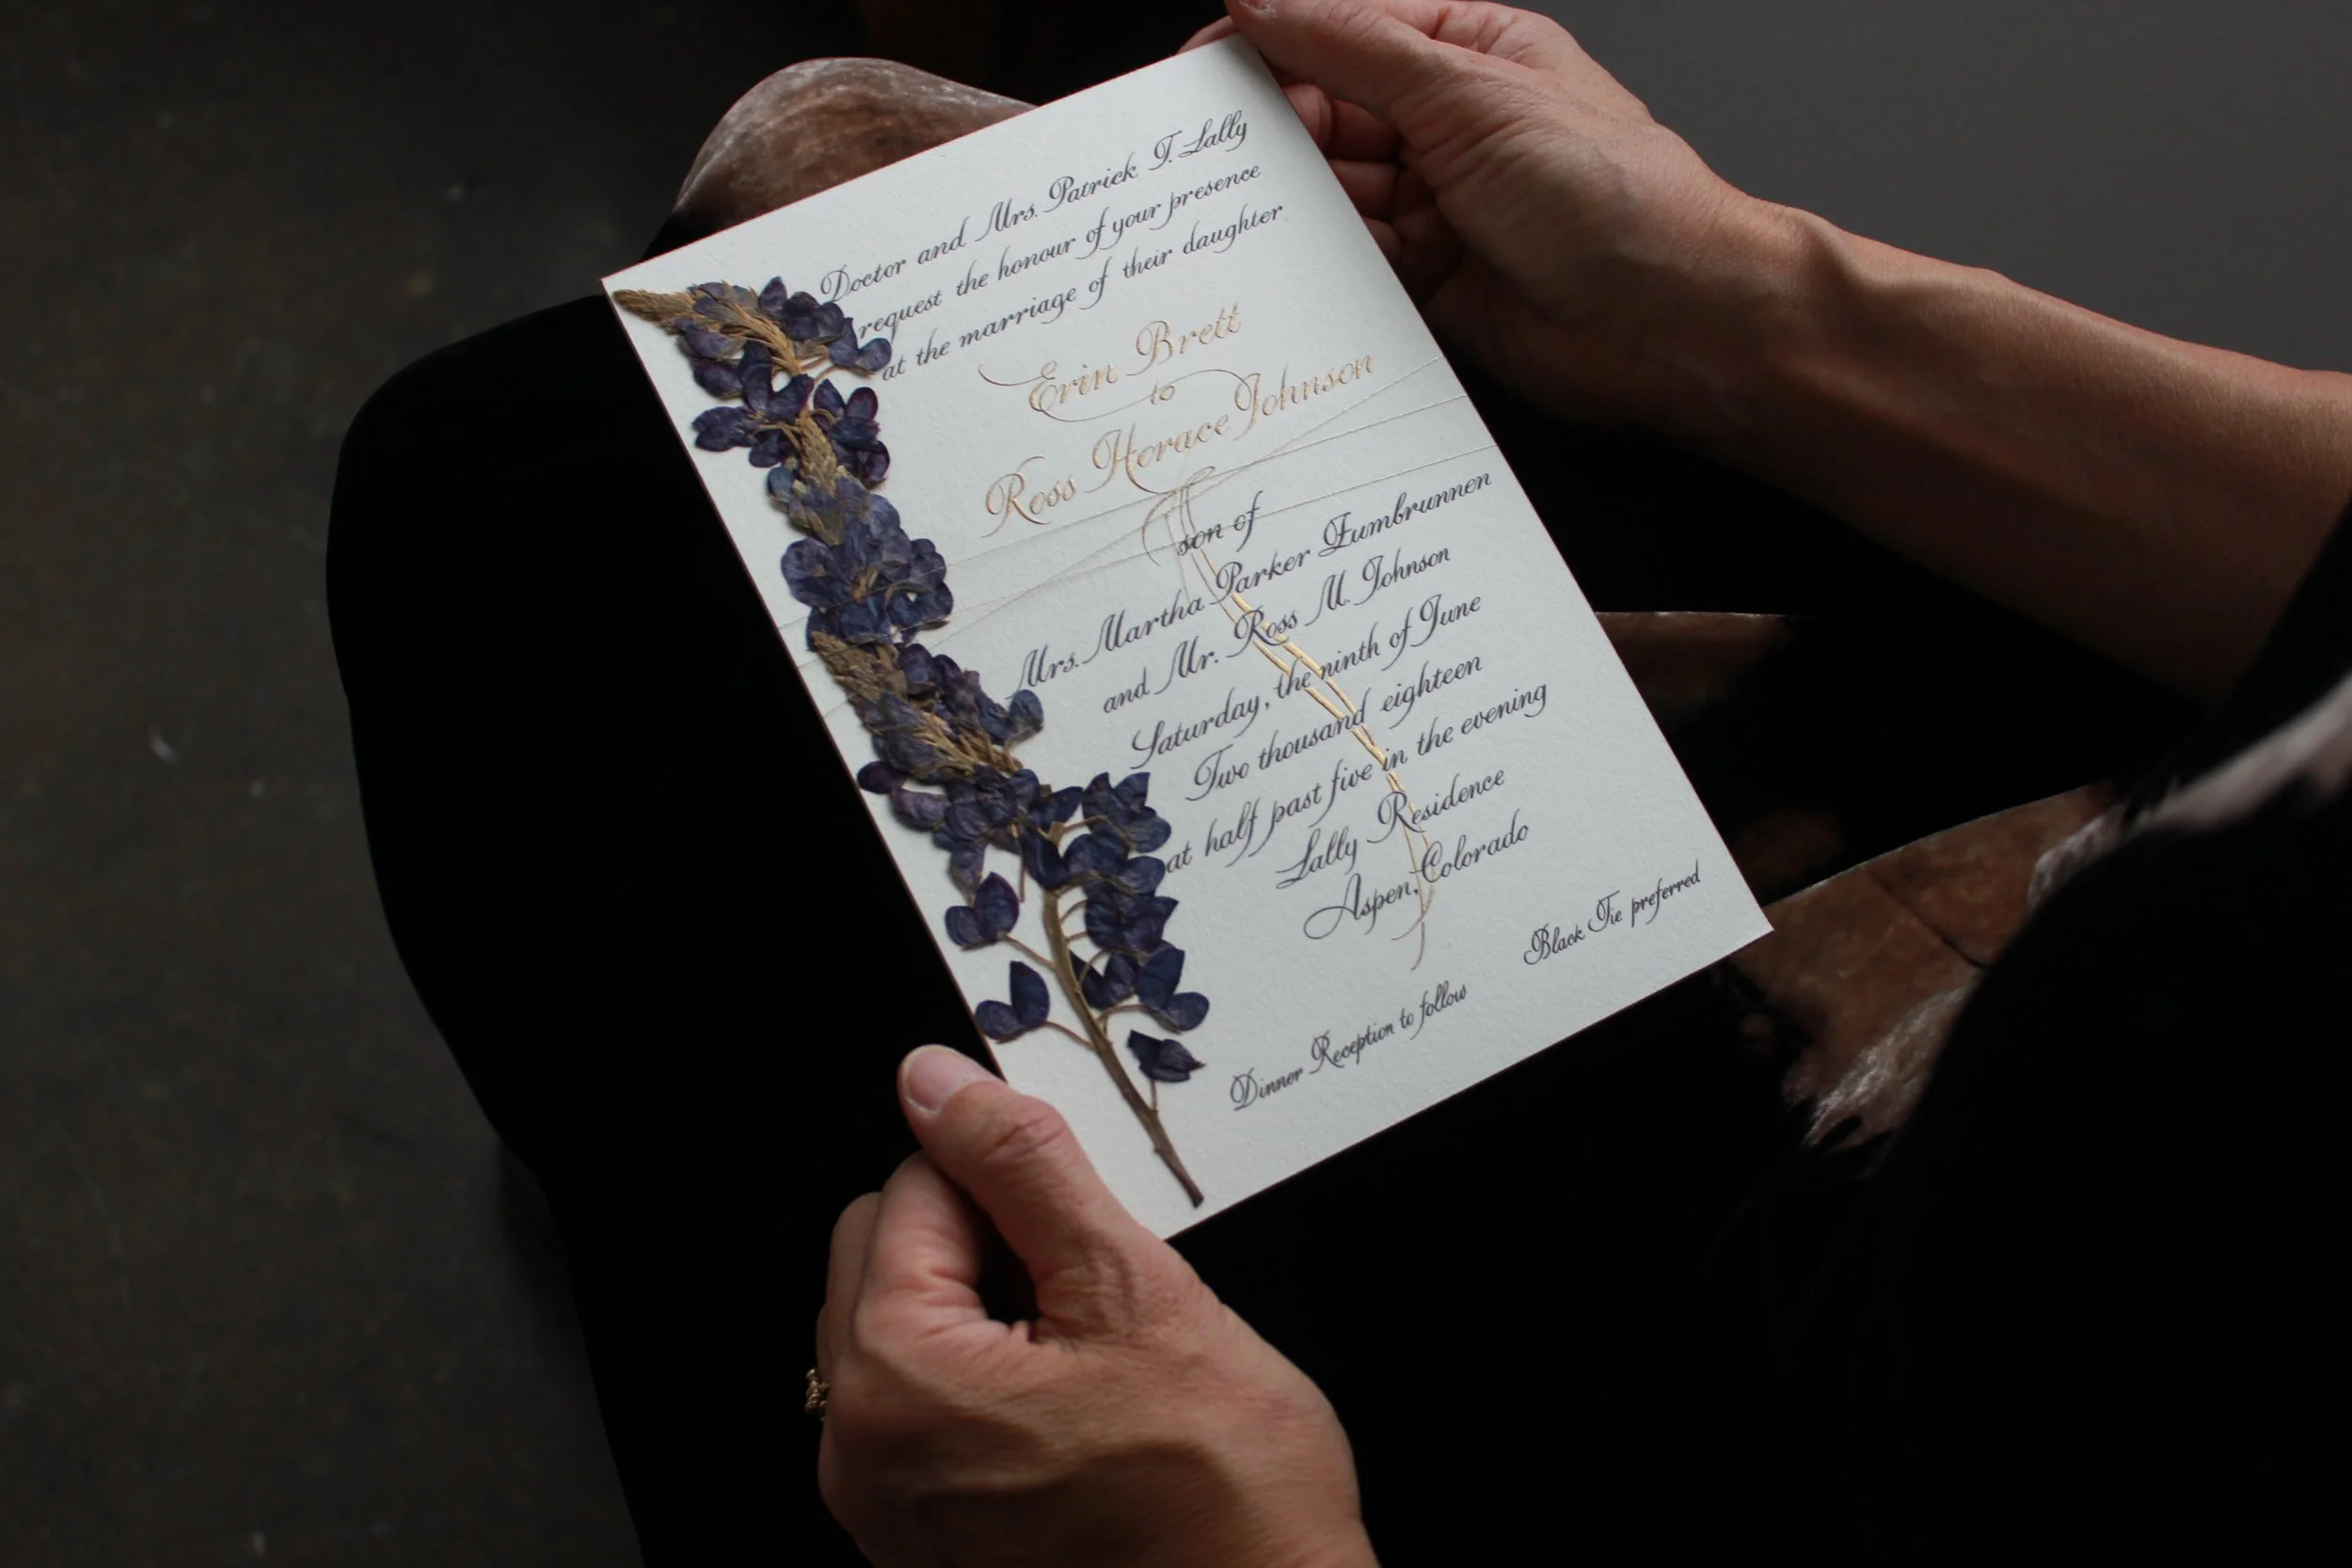 Doctor and Mrs. Patrick T. Lally
request the honour of your presence
at the marriage of their daughter
Erin Brett
to
Ross Horace Johnson
son of
Mrs. Martha Parker Zumbrunnen
and Mr. Ross M. Johnson
Saturday, the ninth of June
Two thousand eighteen
at half past five in the evening
Lally Residence
Aspen, Colorado
Dinner Reception to follow
Black Tie preferred